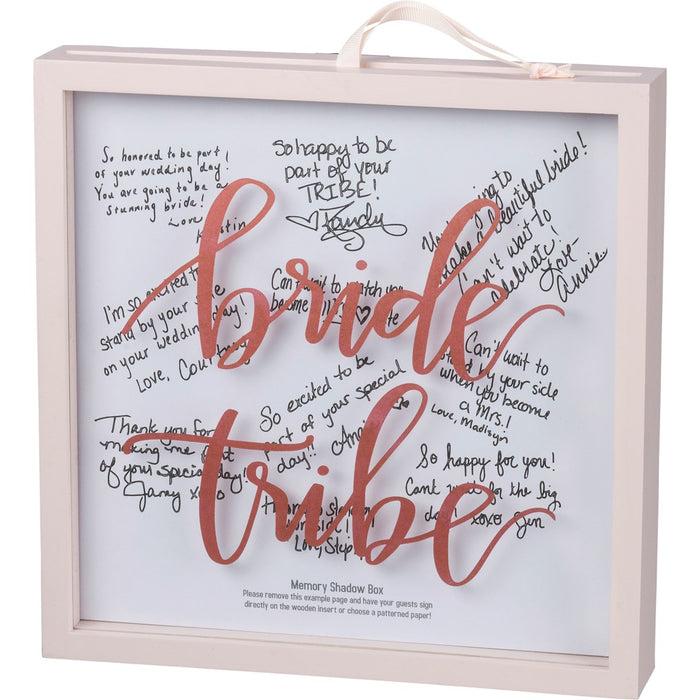 So honored to be part
of your wedding day!
You are going to be a
stunning bride!
Love
So happy to be
part of your
TRIBE!
Randy
going to
beautiful bride!
can't wait to
celebrate!
Love-
Annie
bride
I'm so excited to
stand by your
on your wedding day!
Love, Courtney
Can't wait to watch you
become
Can't wait to
stand by your side
when you become
a Mrs.!
Love, Madisyn
So excited to be
part of your special
day!!
tribe
Thank you for
making me part
of your special day!
Jamy xoxo
So happy for you!
Cant wait for the big
day! xoxo Jen
Love, Steph
Memory Shadow Box
Please remove this example page and have your guests sign
directly on the wooden insert or choose a patterned paper!